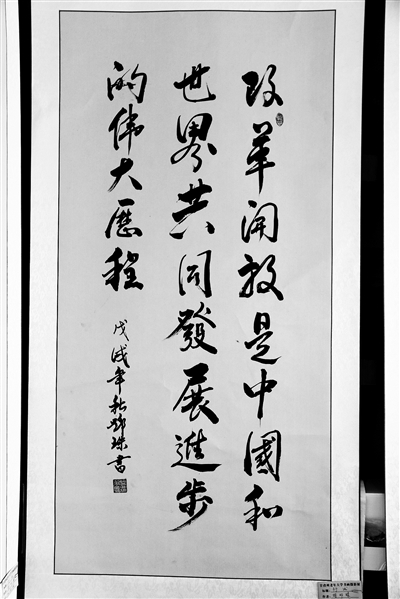 改革开放是中國和
世界共同發展進步
的偉大歷程
戊戌年秋鄧珠書